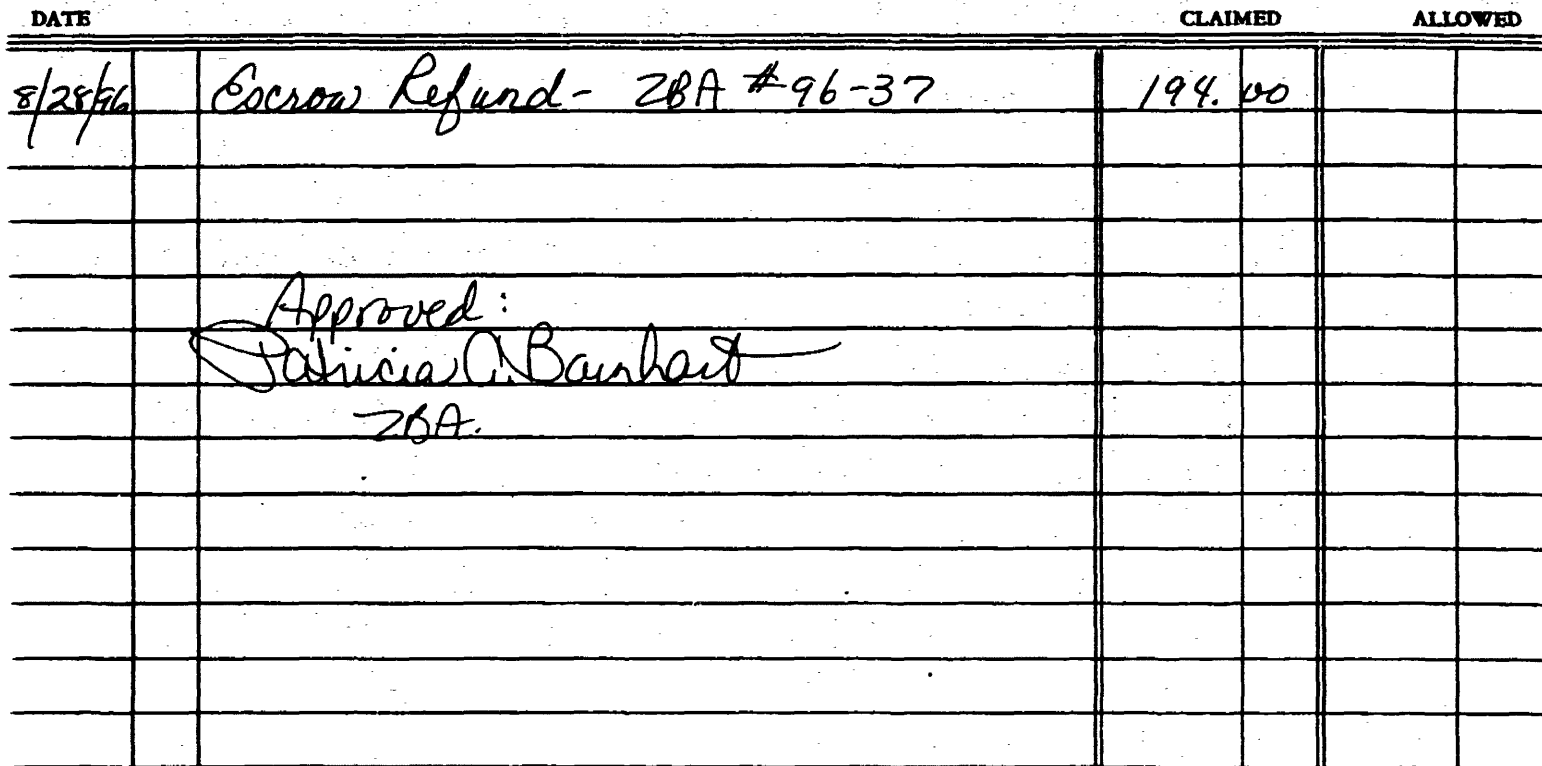 DATE CLAIMED ALLOWED
8/28/96 Escrow Refund - ZBA #96-37 194.00
Approved:
Patricia A. Barnhart
ZBA.